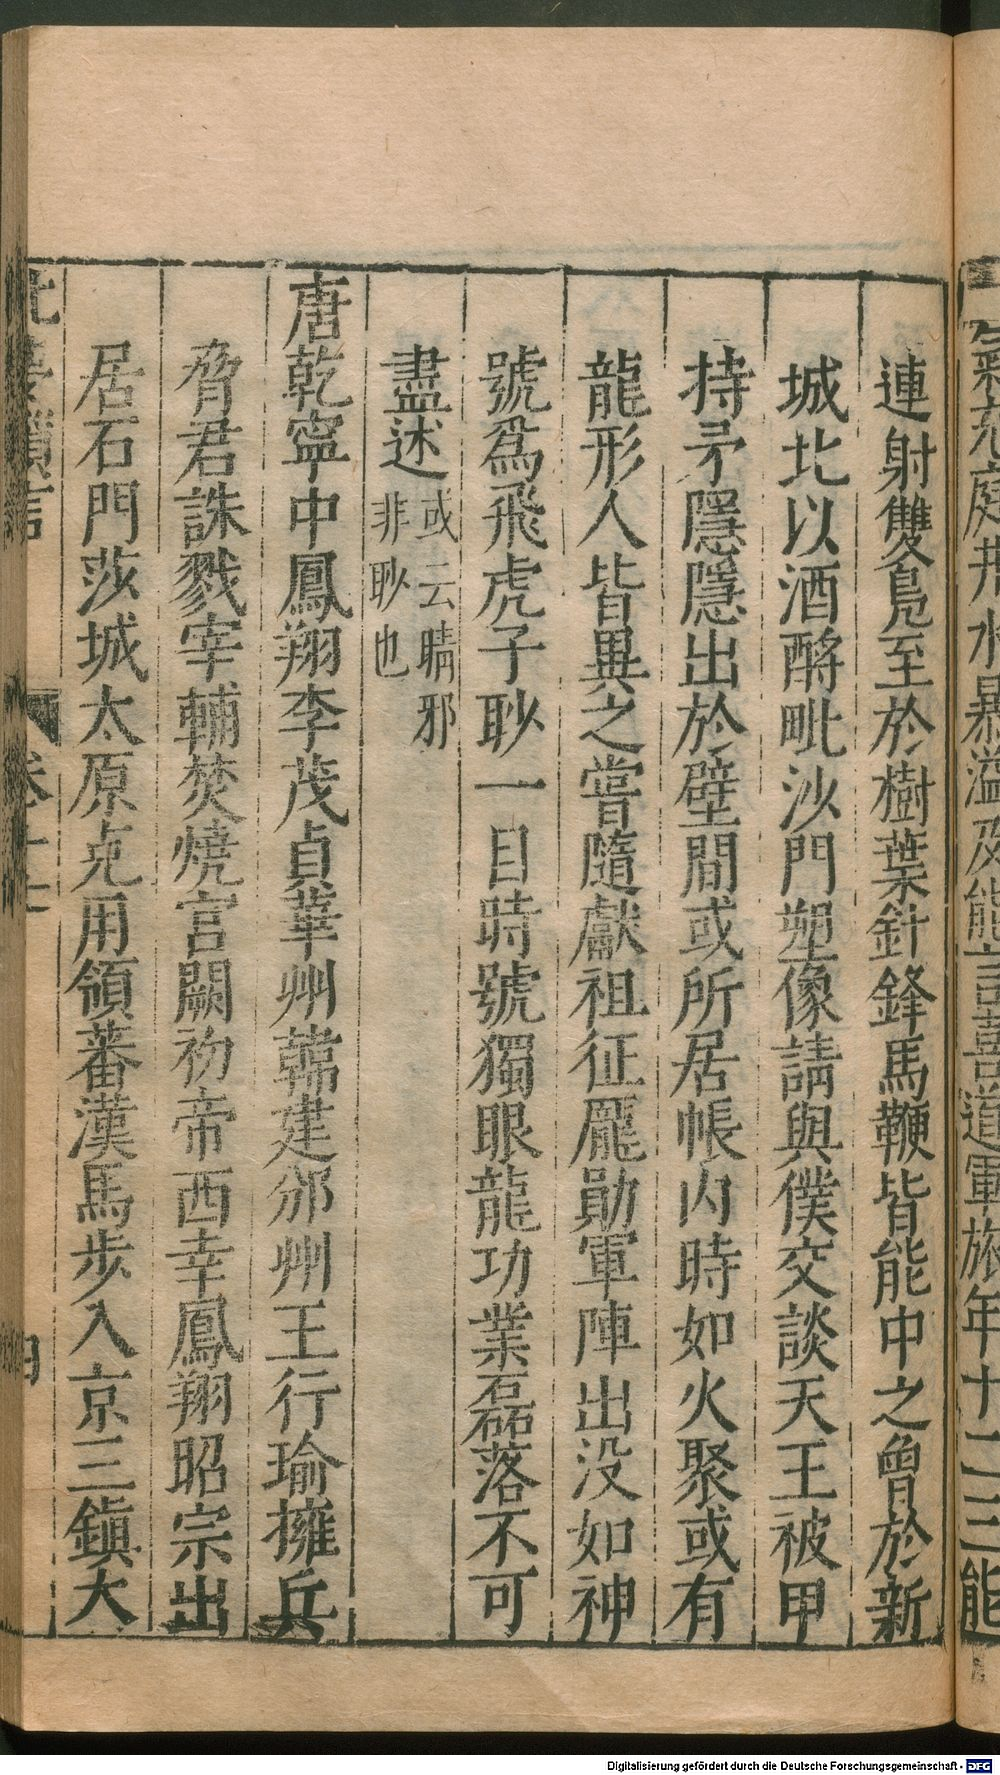 竁充庭井水暴溢及能言喜道軍旅年十二三能
連射雙鳧至於樹葉針鋒馬鞭皆能中之曾於新
城北以酒酹毗沙門塑像請與僕交談天王被甲
持矛隱隱出於壁間或所居帳内時如火聚或有
龍形人皆異之嘗隨獻祖征龎勛軍陣出没如神
號爲飛虎子眇一目時號獨眼龍功業磊落不可
盡述或云睛邪
非眇也
唐乾寧中鳳翔李茂貞華州韓建邠州王行瑜擁兵
脅君誅戮宰輔焚燒宫闕初帝西幸鳳翔昭宗出
居石門莎城太原克用領蕃漢馬步入京三鎭大
北夢瑣言
卷十七
四
Digitalisierung gefördert durch die Deutsche Forschungsgemeinschaft - DFG